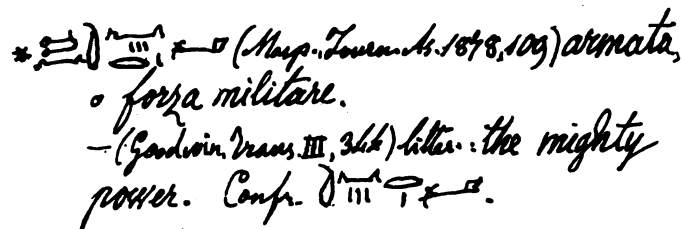 * (Masp. Journ. As. 1878, 109) armata,
o forza militare.
— (Goodwin. Trans. III, 344) litter.: the mighty
power. Confr.